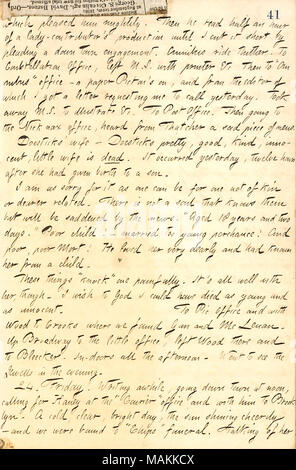 41
which pleased him mightily. Then he read half an hour
of a lady-contributor's production until I cut it short by
pleading a down town engagement. Omnibus ride thither. To
Constellation Office, left M.S. with printer &c. Then to "Om
nibus" office - a paper Picton's on, and from the editor of
which I got a letter requesting me to call yesterday. Took
away M.S. to illustrate &c. To Post Office. Then going to
the Nick nax office, heard from Thatcher a sad piece of news
Doesticks' wife - Doesticks pretty, good, kind, inno-
cent, little wife is dead. It occurred yesterday, twelve hours
after she had given birth to a son.
I am as sorry for it as one can be for one not of kin
or dearer related. There is not a soul that knows them
but will be saddened by the news. "Aged 18 years and two
days." Poor child! married too young perchance! And
poor, poor Mort! He loved her very dearly and had known
her from a child.
These things "knock" me painfully. It's all well with
her, though. I wish to God I could have died as young and
as innocent. To Pic office and with
Wood to Crooks where we found Gun and Mc Lenan.
Up Broadway to the little office; left Wood there and
to Bleecker. In-doors all the afternoon. Went to see the
Jewells in the evening.
24. Friday. Writing awhile, going down town at noon,
calling for Haney at the "Courier" office and with him to Brook
lyn. A cold, clear, bright day, the sun shining cheerily
- and we were bound to "Chips" funeral. Talking of her
a
alamy
Image ID: MAKKCX
www.alamy.com